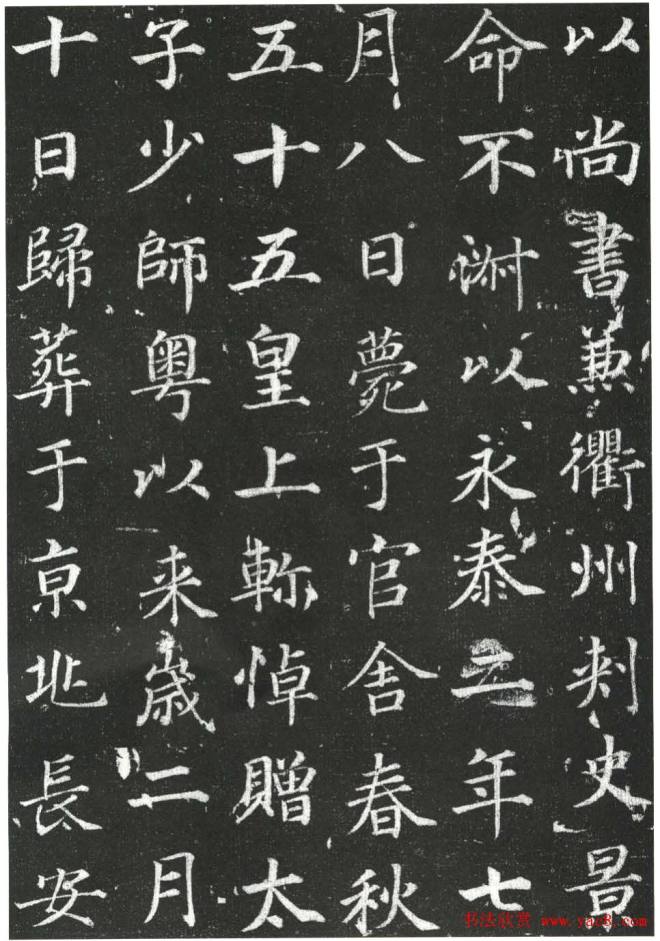 以尚書兼衢州刺史景
命不㴬以永泰二年七
月八日薨于官舍春秋
五十五皇上軫悼贈太
子少師粤以来歲二月
十日歸葬于京兆長安
书法欣赏 www.yac8.com